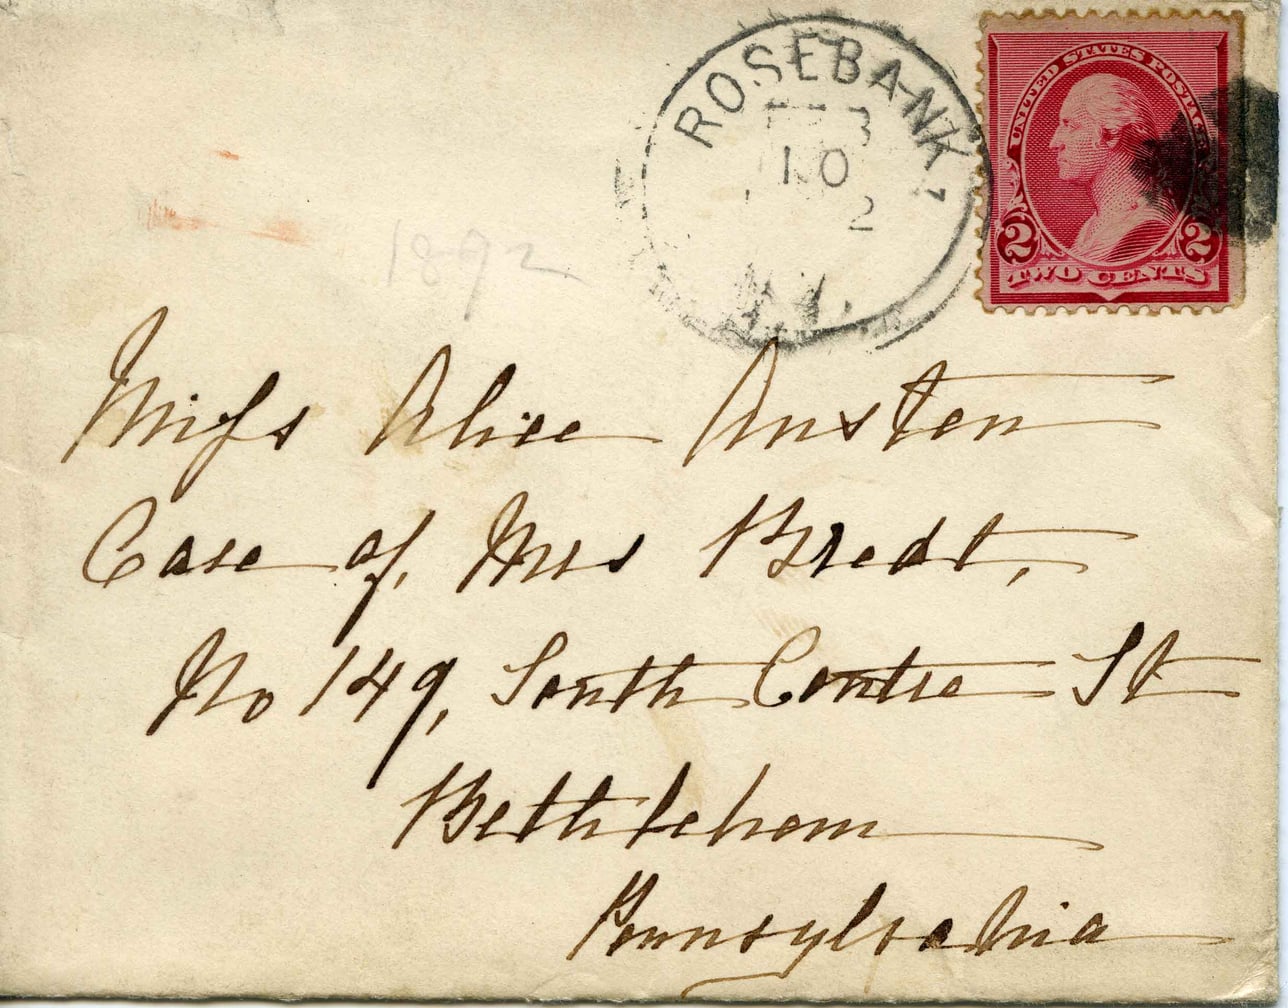 ROSEBANK,
FEB
10
2
N.Y.
1892
UNITED STATES POSTAGE
2 2
TWO CENTS
Miss Alice Austen
Care of, Mrs Bredt,
No 149, South Centre St
Bethlehem
Pennsylvania